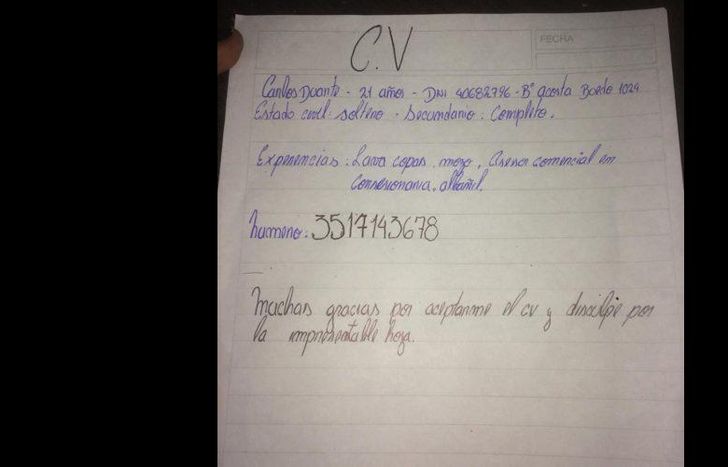 C.V
FECHA
Carlos Duarte - 21 años - DNI 40682796 - Bº acosta Baedo 1024
Estado civil: soltero - Secundario: Completo.
Experiencias: Lava copas, mozo, Asesor comercial en
consesionaria, albañil.
Numero: 3517143678
Muchas gracias por aceptarme el cv y disculpe por
la impresentable hoja.